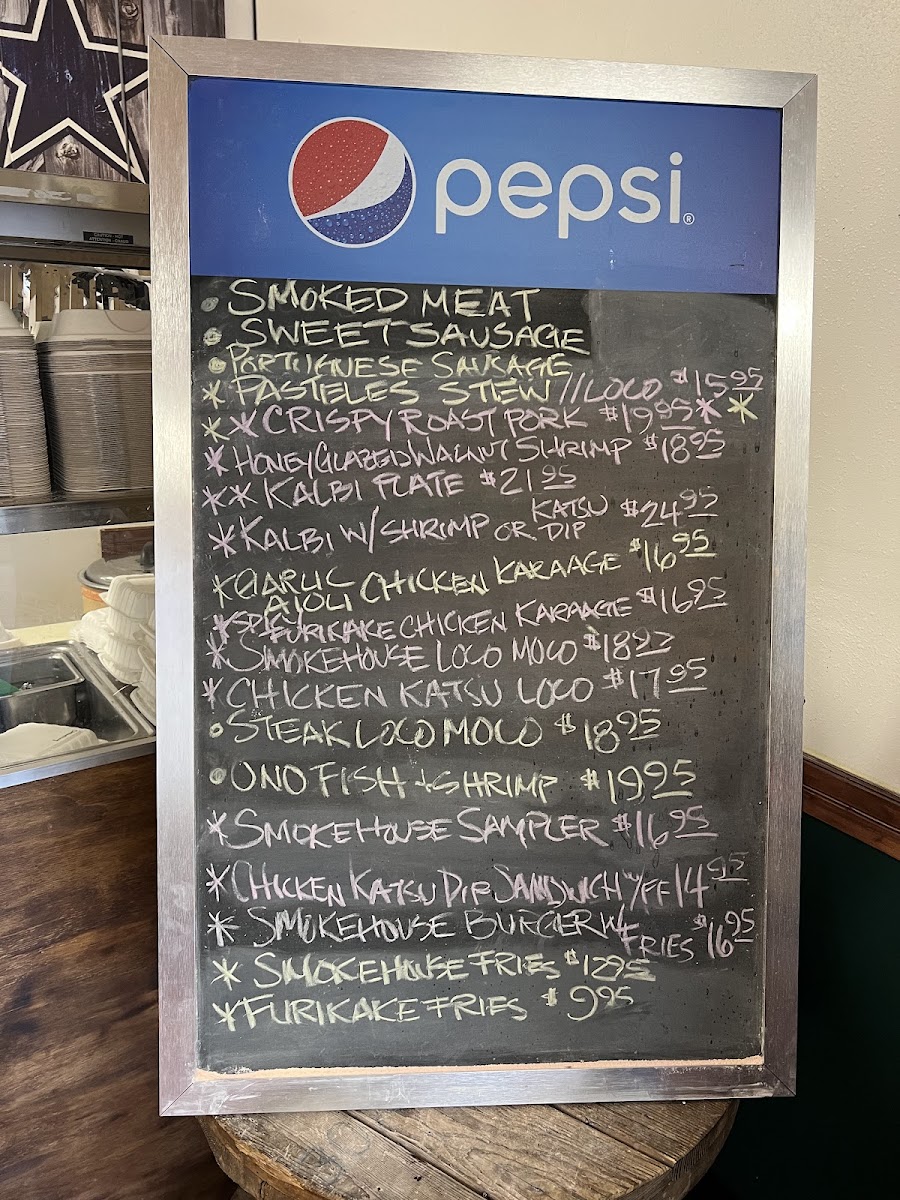 CAUTION: HOT
pepsi®
• SMOKED MEAT
• SWEET SAUSAGE
• PORTUGNESE SAUSAGE
* PASTELES STEW // LOCO $15.95
* * CRISPY ROAST PORK $19.95 * *
* HONEY GLAZED WALNUT SHRIMP $18.95
* * KALBI PLATE $21.95
* KALBI W/ SHRIMP KATSU OR DIP $24.95
* GARLIC AIOLI CHICKEN KARAAGE $16.95
* SPICY FURIKAKE CHICKEN KARAAGE $16.95
* SMOKEHOUSE LOCO MOCO $18.95
* CHICKEN KATSU LOCO $17.95
• STEAK LOCO MOCO $18.95
• ONO FISH + SHRIMP $19.95
* SMOKEHOUSE SAMPLER $16.95
* CHICKEN KATSU DIP SANDWICH W/FF 14.95
* SMOKEHOUSE BURGER W/ FRIES $16.95
* SMOKEHOUSE FRIES $12.95
* FURIKAKE FRIES $9.95